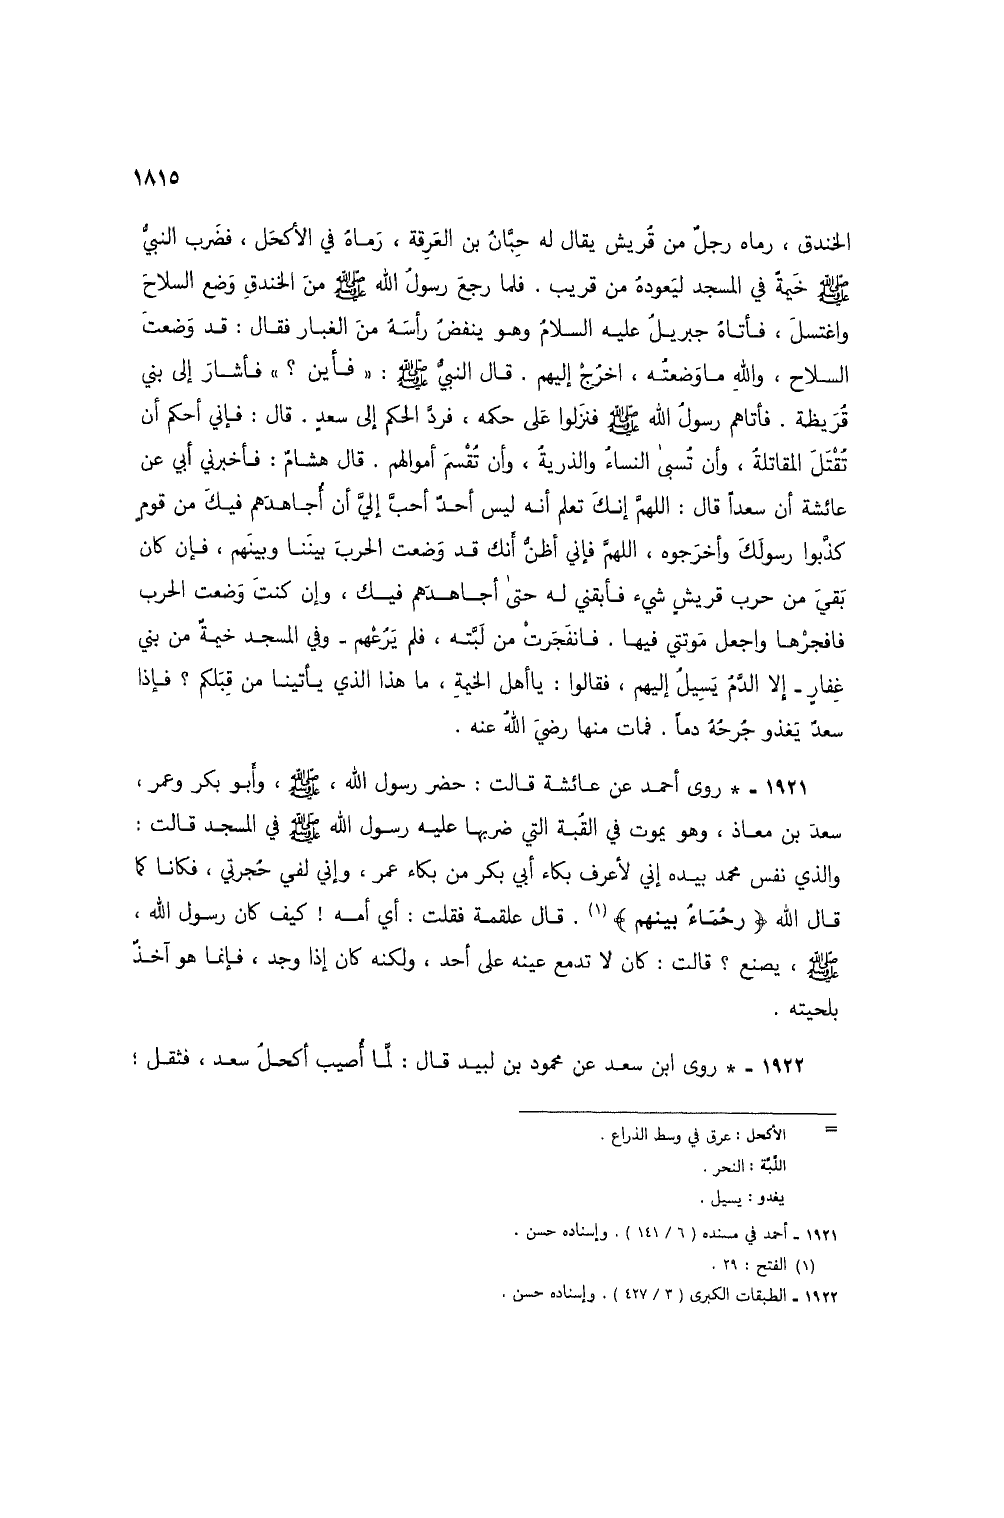 ١٨١٥
الخندق ، رماه رجلٌ من قُريش يقال له حِبَّانُ بن العَرِقة ، رَماهُ في الأكحَل ، فضَرب النبيُّ
ﷺ خَيمةً في المسجد ليَعودهُ من قريب . فلما رجعَ رسولُ الله ﷺ منَ الخندقِ وَضع السلاحَ
واغتسلَ ، فـأتـاهُ جبريـلُ عليـه السـلامُ وهـو ينفضُ رأسَـهُ منَ الغبـار فقـال : قـد وَضعتَ
السـلاح ، واللهِ مـاوَضعتُـه ، اخرُجْ إليهم . قـال النبيُّ ﷺ : « فـأين ؟ » فـأشـارَ إلى بني
قُرَيظة . فأتاهم رسولُ الله ﷺ فنزلوا عَلى حكمه ، فردَّ الحكم إلى سعدٍ . قال : فـإني أحكم أن
تُقْتَلَ المقاتلةُ ، وأن تُسبىٰ النساءُ والذريةُ ، وأن تُقْسمَ أموالهم . قال هشـامٌ : فـأخبرني أبي عن
عائشة أن سعداً قال : اللهمَّ إنـكَ تعلم أنـه ليس أحـدٌ أحبَّ إليَّ أن أُجـاهـدَهم فيـكَ من قومٍ
كذَّبوا رسولَكَ وأخرَجوه ، اللهمَّ فإني أظنُّ أنك قـد وَضعت الحربَ بينَنـا وبينَهم ، فـإن كان
بَقيَ من حرب قريشٍ شيء فـأبقني لـه حتىٰ أجـاهـدَهم فيـك ، وإن كنتَ وَضعت الحرب
فافجرْهـا واجعل مَوتتي فيهـا . فـانفَجَرتْ من لَبَّتـه ، فلم يَرُعْهم ـ وفي المسجـد خيمةٌ من بني
غِفارٍ ـ إلا الدَّمُ يَسِيلُ إليهم ، فقالوا : ياأهل الخيمةِ ، ما هذا الذي يـأتينـا من قِبَلكم ؟ فـإذا
سعدٌ يَغذو جُرحُهُ دماً . فمات منها رضيَ اللهُ عنه .
١٩٢١ ـ * روى أحمـد عن عـائشـة قـالت : حضر رسول الله ، ﷺ ، وأبـو بكر وعمر ،
سعدَ بن معـاذ ، وهو يموت في القُبـة التي ضربهـا عليـه رسـول الله ﷺ في المسجـد قـالت :
والذي نفس محمد بيـده إني لأعرف بكاء أبي بكر من بكاء عمر ، وإني لفي حُجرتي ، فكانـا كما
قـال الله ﴿ رحُمَـاءُ بينهم ﴾ (١) . قـال علقمـة فقلت : أي أمـه ! كيف كان رسـول الله ،
ﷺ ، يصنع ؟ قالت : كان لا تدمع عينه على أحد ، ولكنه كان إذا وجد ، فـإنمـا هو آخـذٌ
بلحيته .
١٩٢٢ ـ * روى ابن سعـد عن محمود بن لبيـد قـال : لمَّـا أُصيب أكحـلُ سعـد ، فثقـل ؛
= الأكحل : عرق في وسط الذراع .
اللَّبَّة : النحر .
يغدو : يسيل .
١٩٢١ ـ أحمد في مسنده ( ٦ / ١٤١ ) . وإسناده حسن .
(١) الفتح : ٢٩ .
١٩٢٢ ـ الطبقات الكبرى ( ٣ / ٤٢٧ ) . وإسناده حسن .